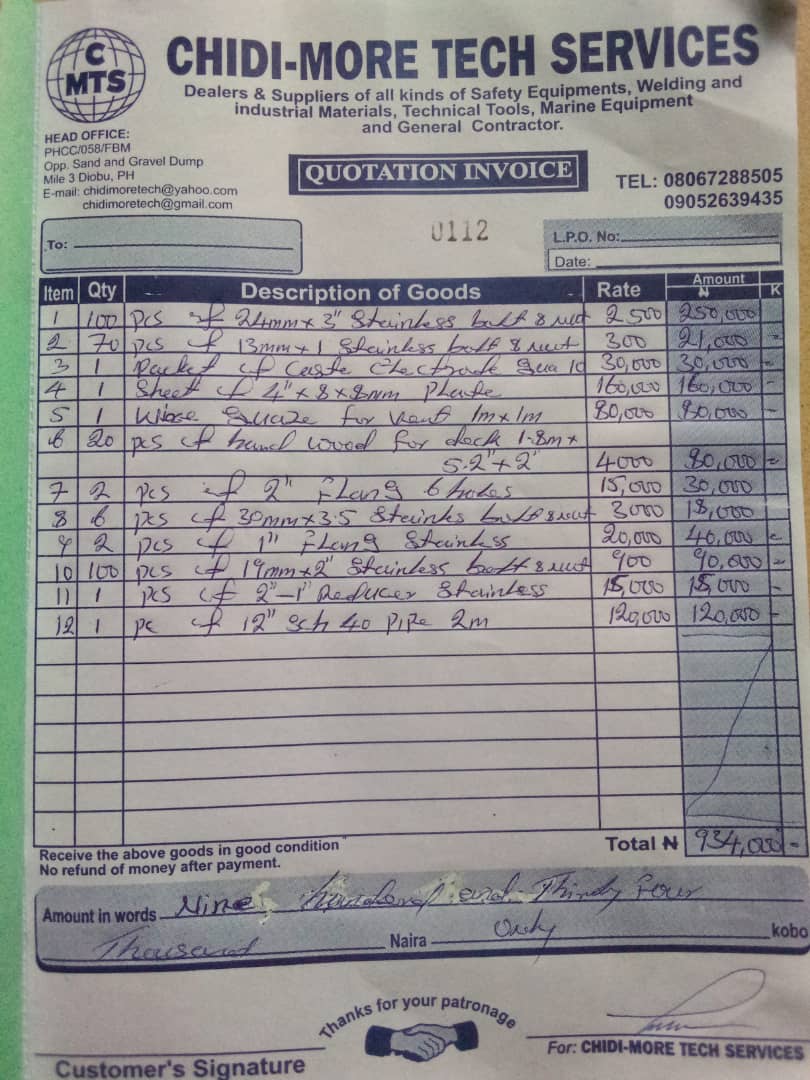 C
MTS
CHIDI-MORE TECH SERVICES
Dealers & Suppliers of all kinds of Safety Equipments, Welding and
industrial Materials, Technical Tools, Marine Equipment
and General Contractor.
HEAD OFFICE:
PHCC/058/FBM
Opp. Sand and Gravel Dump
Mile 3 Diobu, PH
E-mail: chidimoretech@yahoo.com
chidimoretech@gmail.com
QUOTATION INVOICE
TEL: 08067288505
09052639435
To:
0112
L.P.O. No:
Date:
Item Qty Description of Goods Rate Amount ₦ K
1 100 pcs of 24mm x 3" Stainless bolt & nut 2500 250,000
2 70 pcs of 13mm x 1 Stainless bolt & nut 300 21,000 -
3 1 Packet of Electrode 30,000 30,000 -
4 1 Sheet of 4" x 8 x 8mm Plate 160,000 160,000 -
5 1 for vent 1m x 1m 80,000 80,000 -
6 20 pcs of hard wood for deck 1.8m x
5.2" x 2" 4000 80,000 =
7 2 pcs of 2" Flang 6 holes 15,000 30,000
8 6 pcs of 30mm x 3.5 Stainles bolt & nut 3000 18,000
9 2 pcs of 1" Flang Stainless 20,000 40,000
10 100 pcs of 19mm x 2" Stainless bolt & nut 900 90,000 -
11 1 pcs of 2"-1" Reducer Stainless 15,000 15,000 -
12 1 pc of 12" Sch 40 PIPe 2m 120,000 120,000 -
Receive the above goods in good condition
No refund of money after payment.
Total ₦ 934,000 -
Amount in words Nine hundred and Thirdy Four
Thousand Naira Only kobo
Thanks for your patronage
Customer's Signature
For: CHIDI-MORE TECH SERVICES